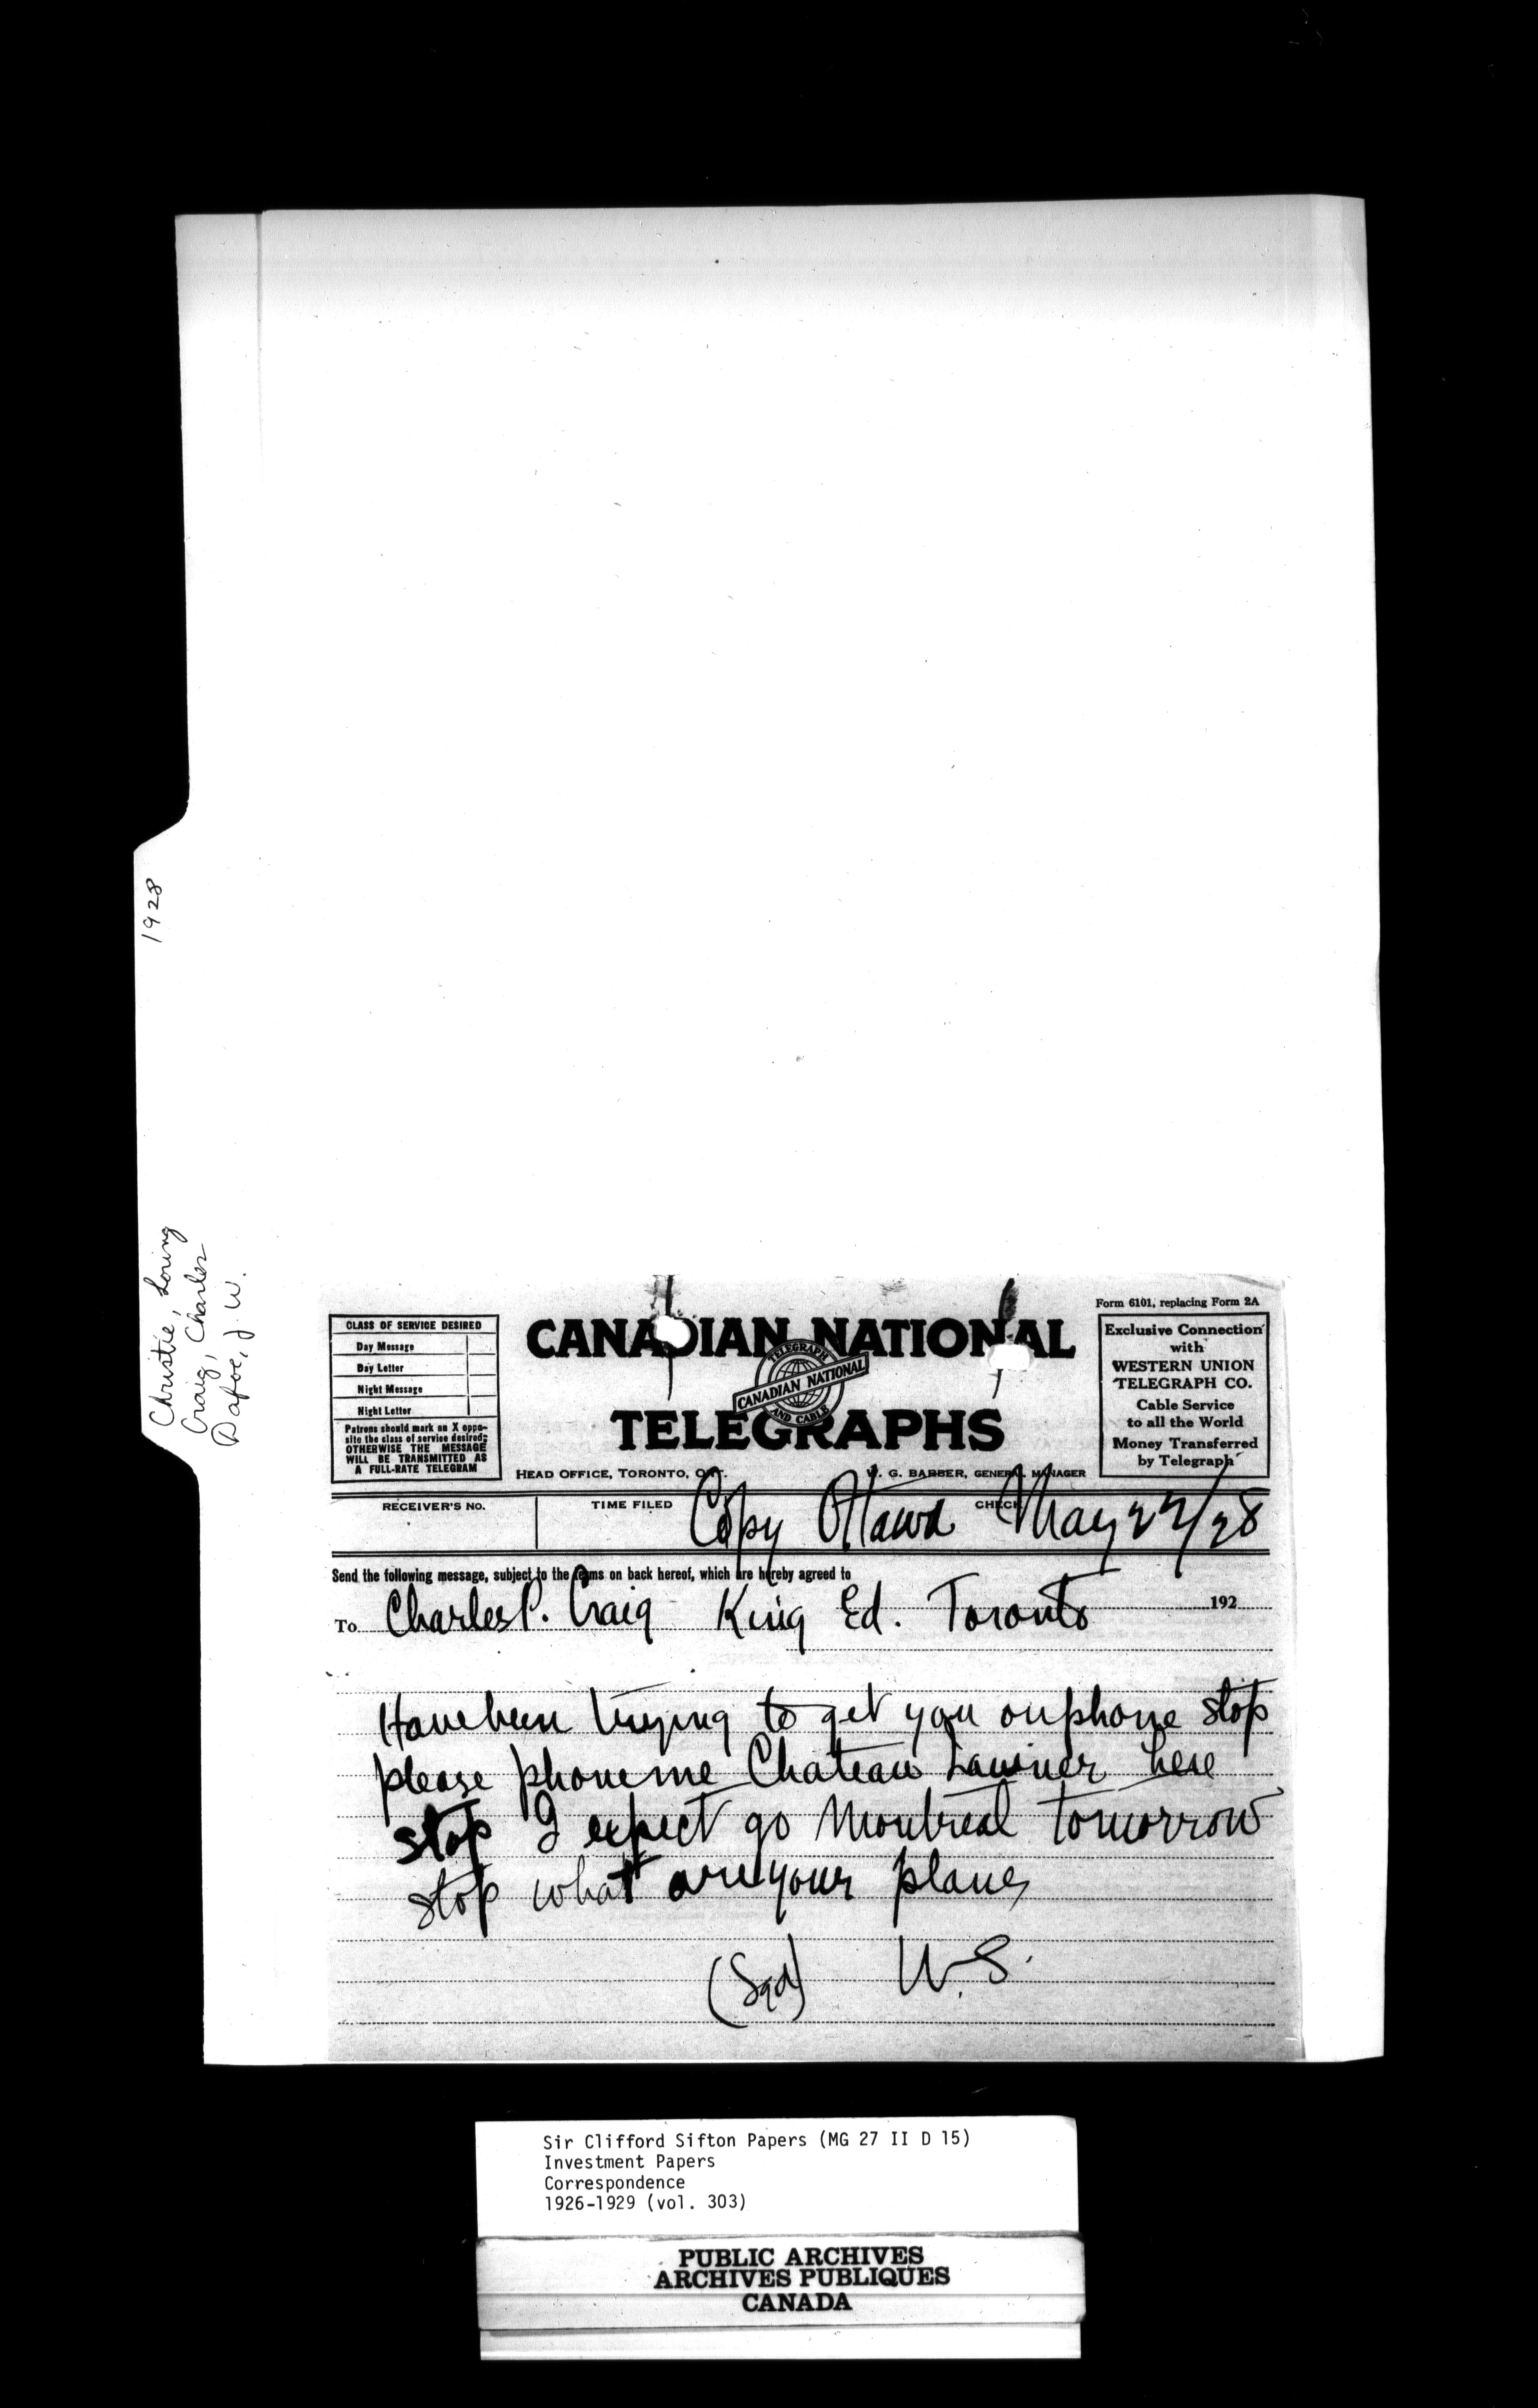 1928
Christie, Loring
Craig, Charles
Dafoe, J. W.
Form 6101, replacing Form 2A
CLASS OF SERVICE DESIRED
Day Message
Day Letter
Night Message
Night Letter
Patrons should mark an X oppo-
site the class of service desired;
OTHERWISE THE MESSAGE
WILL BE TRANSMITTED AS
A FULL-RATE TELEGRAM
CANADIAN NATIONAL
TELEGRAPH
CANADIAN NATIONAL
AND CABLE
TELEGRAPHS
HEAD OFFICE, TORONTO, ONT.
W. G. BARBER, GENERAL MANAGER
Exclusive Connection
with
WESTERN UNION
TELEGRAPH CO.
Cable Service
to all the World
Money Transferred
by Telegraph
RECEIVER'S NO. TIME FILED CHECK
Copy Ottawa May 22/28
Send the following message, subject to the terms on back hereof, which are hereby agreed to
192
To Charles P. Craig King Ed. Toronto
Have been trying to get you on phone stop
please phone me Chateau Laurier here
stop I expect go Montreal tomorrow
stop what are your plans
(Sgd) W.S.
Sir Clifford Sifton Papers (MG 27 II D 15)
Investment Papers
Correspondence
1926-1929 (vol. 303)
PUBLIC ARCHIVES
ARCHIVES PUBLIQUES
CANADA